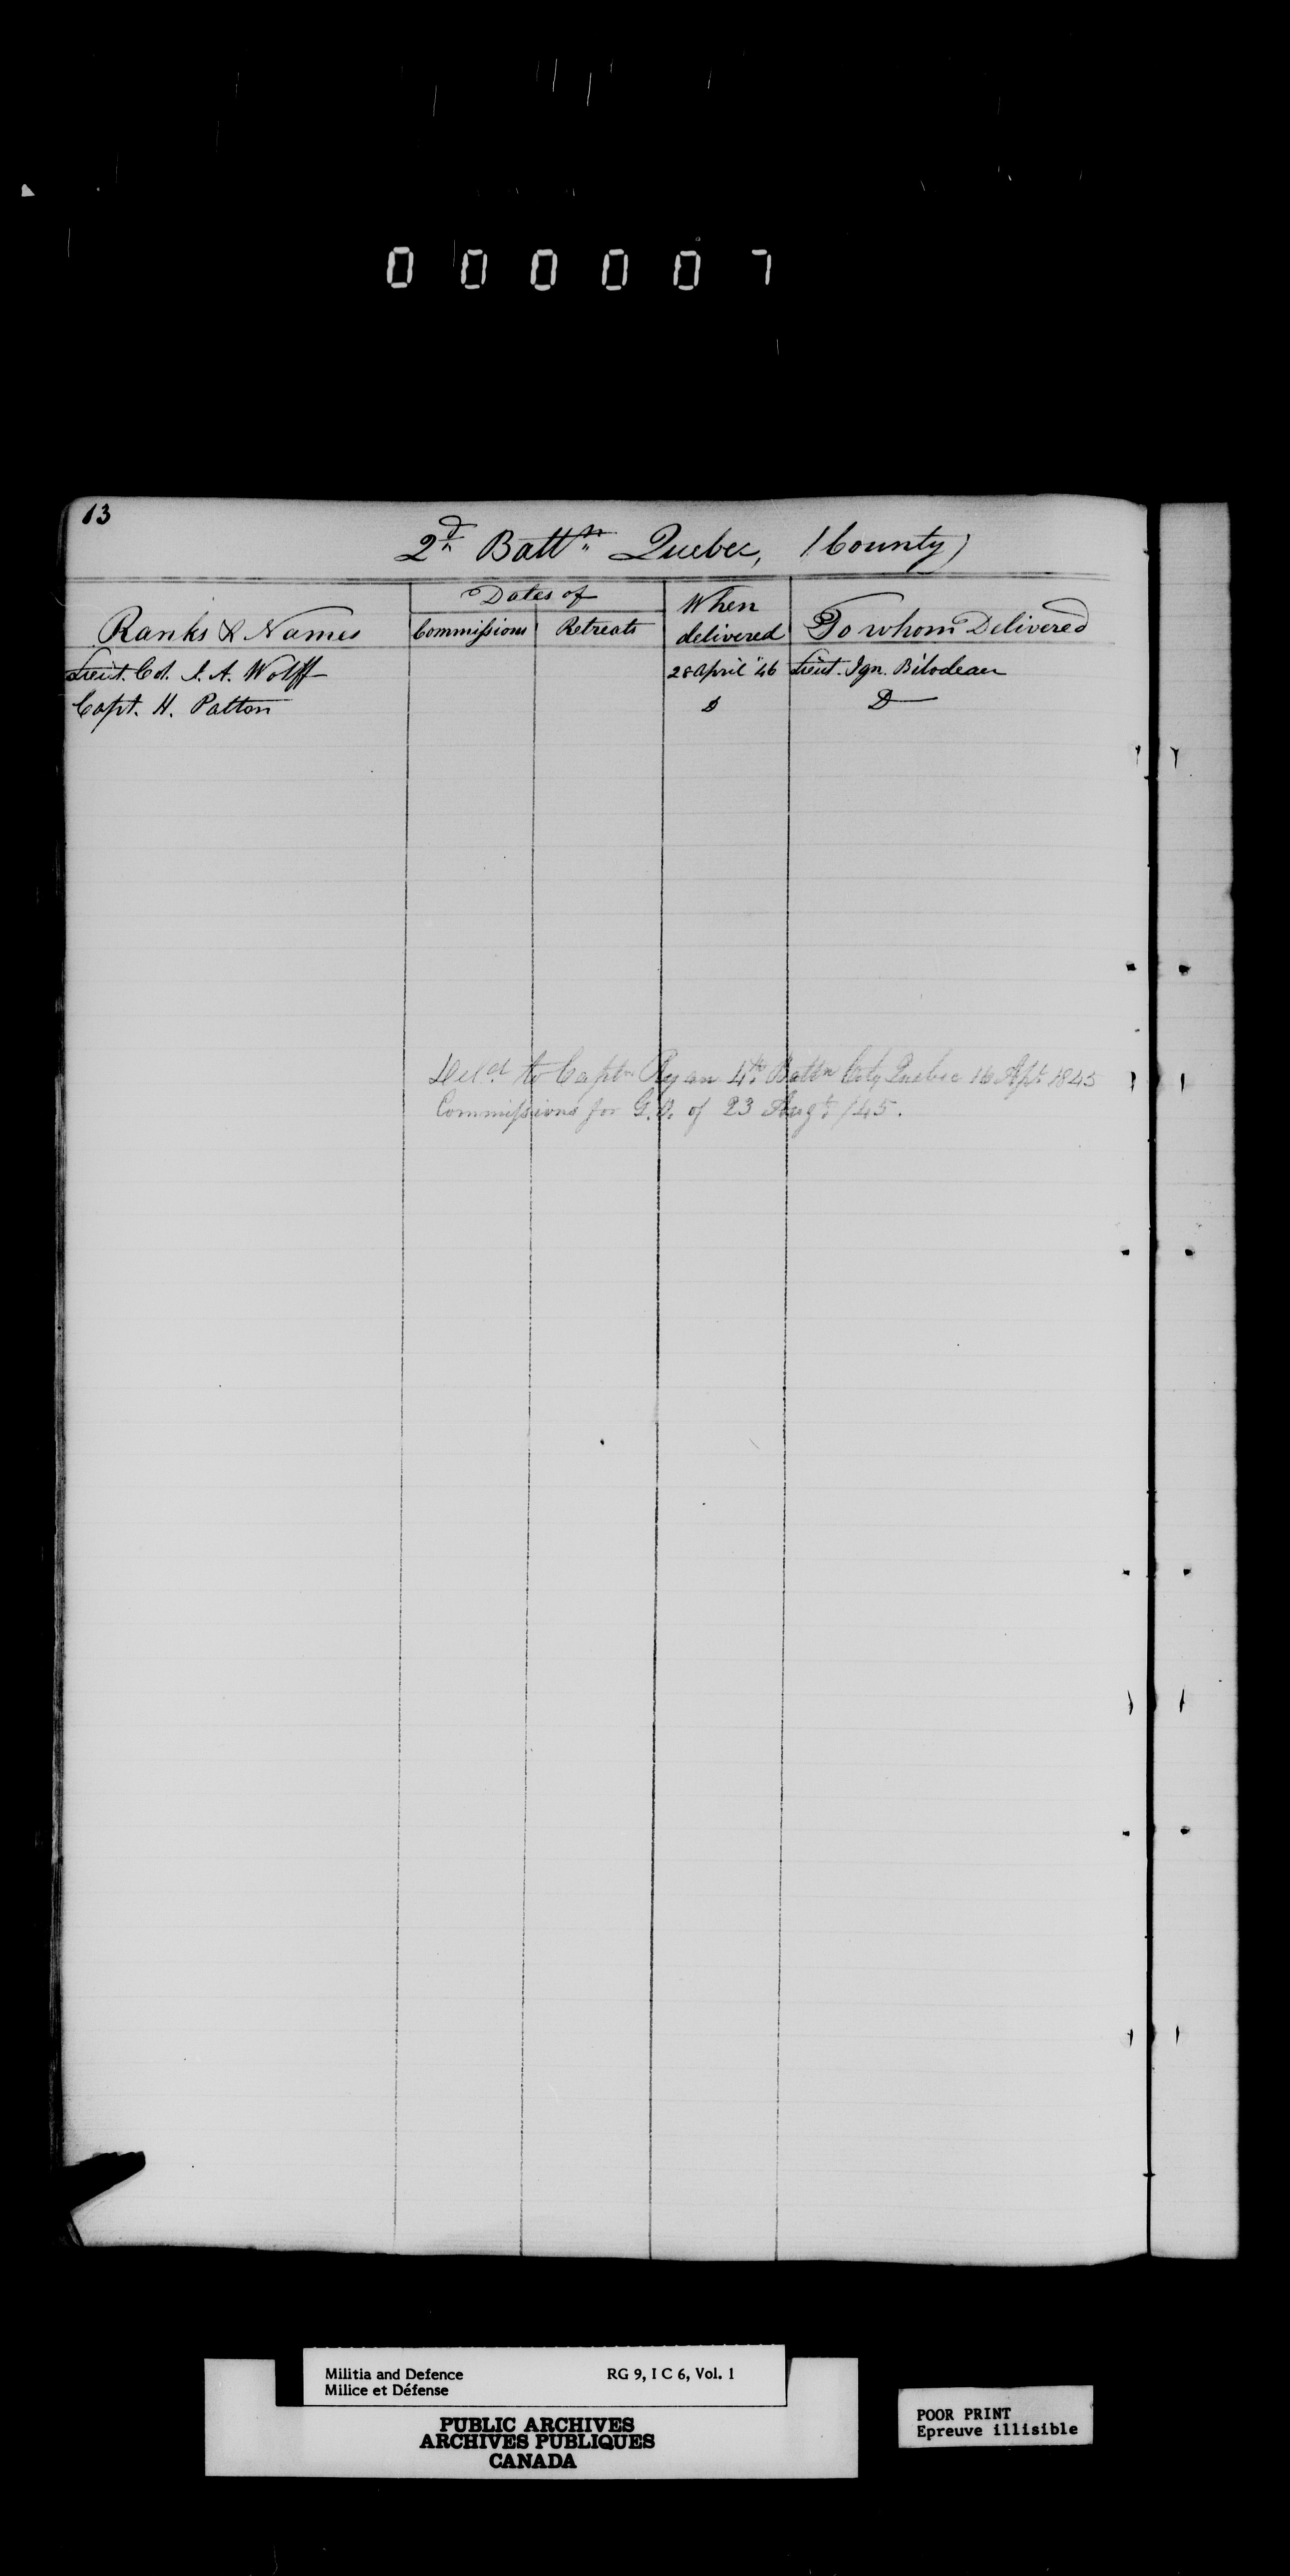 000007
13
2d Battn Quebec, (County)
Ranks & Names
Dates of
Commissions
Retreats
When delivered
To whom Delivered
Lieut. Col. I. A. Wolff 28 April '46 Lieut. Ign. Bilodeau
Capt. H. Patton Do Do
Deld. to Captn Ryan 4th Battn City Quebec 16 Apl 1845
Commissions for G.O. of 23 Augt /45.
Militia and Defence RG 9, I C 6, Vol. 1
Milice et Défense
PUBLIC ARCHIVES
ARCHIVES PUBLIQUES
CANADA
POOR PRINT
Epreuve illisible